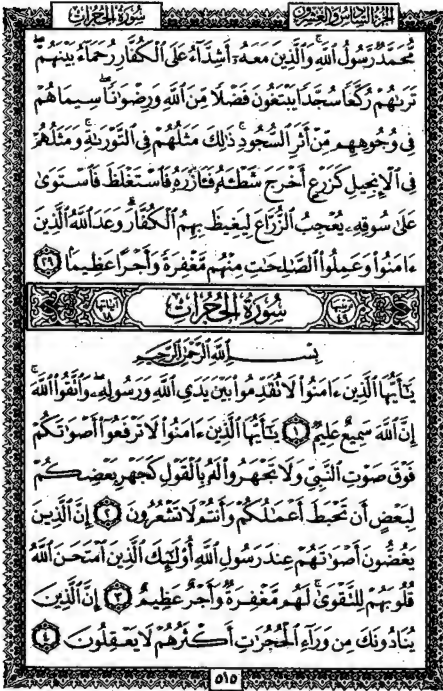 الجزء السادس والعشرون
سورة الحجرات
مُّحَمَّدٌ رَّسُولُ ٱللَّهِ ۚ وَٱلَّذِينَ مَعَهُۥٓ أَشِدَّآءُ عَلَى ٱلْكُفَّارِ رُحَمَآءُ بَيْنَهُمْ ۖ
تَرَىٰهُمْ رُكَّعًا سُجَّدًا يَبْتَغُونَ فَضْلًا مِّنَ ٱللَّهِ وَرِضْوَٰنًا ۖ سِيمَاهُمْ
فِى وُجُوهِهِم مِّنْ أَثَرِ ٱلسُّجُودِ ۚ ذَٰلِكَ مَثَلُهُمْ فِى ٱلتَّوْرَىٰةِ ۚ وَمَثَلُهُمْ
فِى ٱلْإِنجِيلِ كَزَرْعٍ أَخْرَجَ شَطْـَٔهُۥ فَـَٔازَرَهُۥ فَٱسْتَغْلَظَ فَٱسْتَوَىٰ
عَلَىٰ سُوقِهِۦ يُعْجِبُ ٱلزُّرَّاعَ لِيَغِيظَ بِهِمُ ٱلْكُفَّارَ ۗ وَعَدَ ٱللَّهُ ٱلَّذِينَ
ءَامَنُوا۟ وَعَمِلُوا۟ ٱلصَّٰلِحَٰتِ مِنْهُم مَّغْفِرَةً وَأَجْرًا عَظِيمًۢا ٢٩
ترتيبها ٤٩ سورة الحجرات آياتها ١٨
بِسْمِ ٱللَّهِ ٱلرَّحْمَٰنِ ٱلرَّحِيمِ
يَـٰٓأَيُّهَا ٱلَّذِينَ ءَامَنُوا۟ لَا تُقَدِّمُوا۟ بَيْنَ يَدَىِ ٱللَّهِ وَرَسُولِهِۦ ۖ وَٱتَّقُوا۟ ٱللَّهَ ۚ
إِنَّ ٱللَّهَ سَمِيعٌ عَلِيمٌ ١ يَـٰٓأَيُّهَا ٱلَّذِينَ ءَامَنُوا۟ لَا تَرْفَعُوٓا۟ أَصْوَٰتَكُمْ
فَوْقَ صَوْتِ ٱلنَّبِىِّ وَلَا تَجْهَرُوا۟ لَهُۥ بِٱلْقَوْلِ كَجَهْرِ بَعْضِكُمْ
لِبَعْضٍ أَن تَحْبَطَ أَعْمَٰلُكُمْ وَأَنتُمْ لَا تَشْعُرُونَ ٢ إِنَّ ٱلَّذِينَ
يَغُضُّونَ أَصْوَٰتَهُمْ عِندَ رَسُولِ ٱللَّهِ أُو۟لَـٰٓئِكَ ٱلَّذِينَ ٱمْتَحَنَ ٱللَّهُ
قُلُوبَهُمْ لِلتَّقْوَىٰ ۚ لَهُم مَّغْفِرَةٌ وَأَجْرٌ عَظِيمٌ ٣ إِنَّ ٱلَّذِينَ
يُنَادُونَكَ مِن وَرَآءِ ٱلْحُجُرَٰتِ أَكْثَرُهُمْ لَا يَعْقِلُونَ ٤
٥١٥